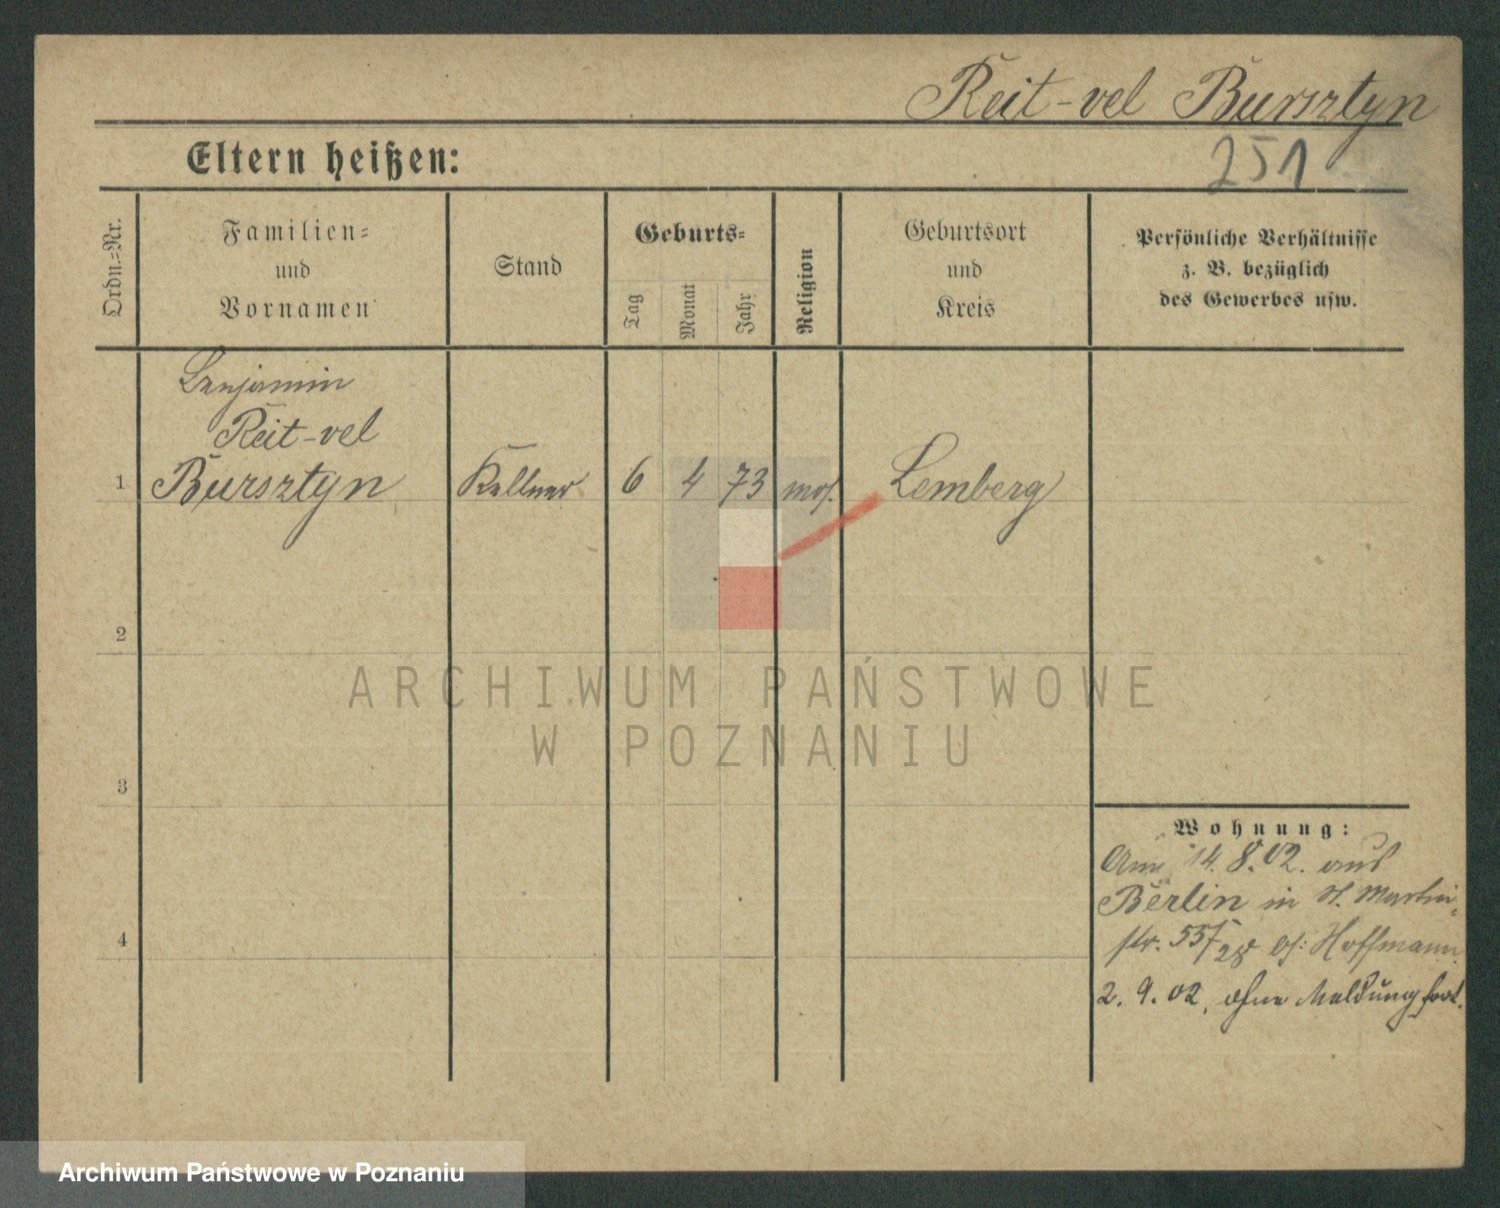 Reit-vel Bursztyn
Eltern heißen:
251
Ordn.-Nr.
Familien-
und
Vornamen
Stand
Geburts-
Tag
Monat
Jahr
Religion
Geburtsort
und
Kreis
Persönliche Verhältnisse
z. B. bezüglich
des Gewerbes usw.
Benjamin
Reit-vel
1 Bursztyn Kellner 6 4 73 mos. Lemberg
2
ARCHIWUM PAŃSTWOWE
W POZNANIU
3
Wohnung:
Am 14.8.02. aus
Berlin in St. Martin-
str. 55/28 bei Hoffmann.
4
2.9.02. ohne Meldung fort.
Archiwum Państwowe w Poznaniu